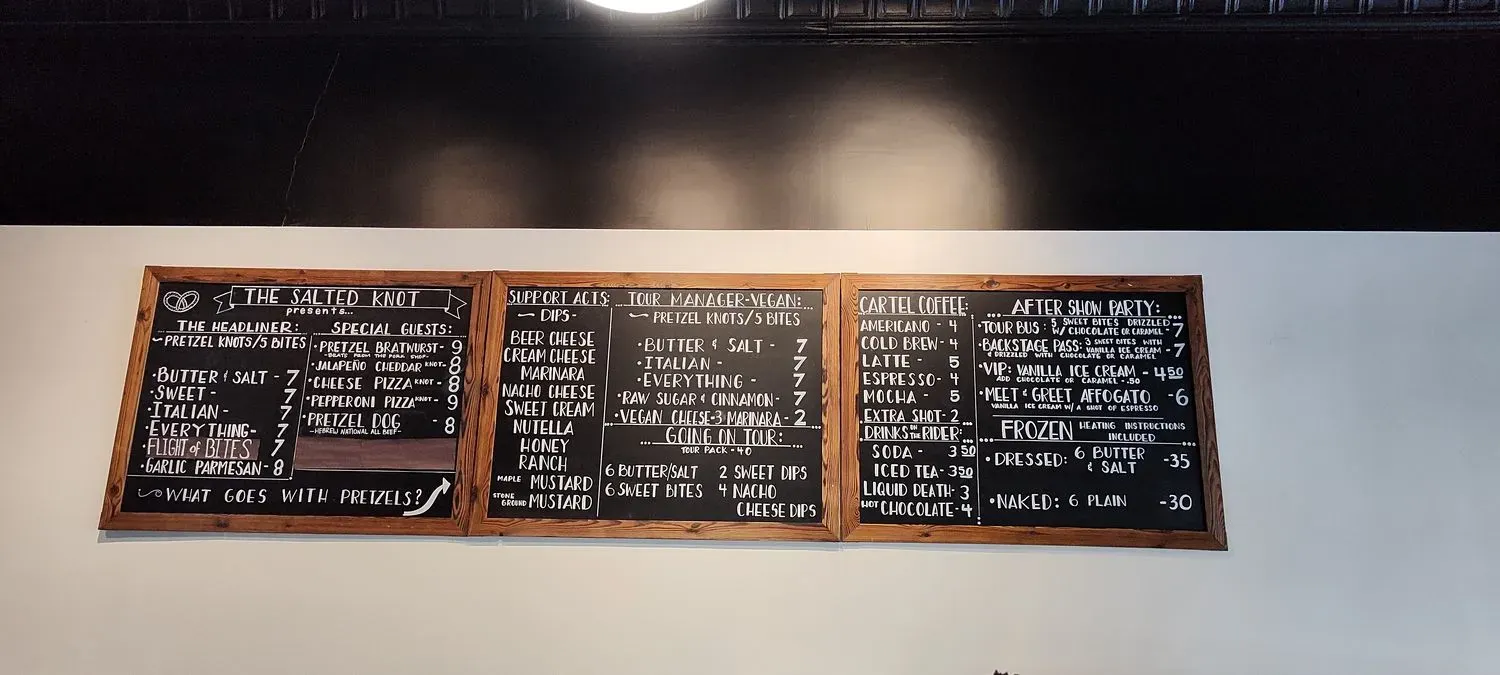 THE SALTED KNOT
presents...
THE HEADLINER:
~PRETZEL KNOTS/5 BITES
•BUTTER & SALT - 7
•SWEET - 7
•ITALIAN - 7
•EVERYTHING - 7
•FLIGHT of BITES 7
•GARLIC PARMESAN - 8
SPECIAL GUESTS:
•PRETZEL BRATWURST - 9
-BRATS FROM THE PORK SHOP-
•JALAPEÑO CHEDDAR KNOT - 8
•CHEESE PIZZA KNOT - 8
•PEPPERONI PIZZA KNOT - 9
•PRETZEL DOG - 8
-HEBREW NATIONAL ALL BEEF-
~WHAT GOES WITH PRETZELS?
SUPPORT ACTS:
~ DIPS -
BEER CHEESE
CREAM CHEESE
MARINARA
NACHO CHEESE
SWEET CREAM
NUTELLA
HONEY
RANCH
MAPLE MUSTARD
STONE GROUND MUSTARD
...TOUR MANAGER-VEGAN:...
~ PRETZEL KNOTS/5 BITES
•BUTTER & SALT - 7
•ITALIAN - 7
•EVERYTHING - 7
•RAW SUGAR & CINNAMON - 7
•VEGAN CHEESE-3 MARINARA - 2
...GOING ON TOUR:...
TOUR PACK - 40
6 BUTTER/SALT 2 SWEET DIPS
6 SWEET BITES 4 NACHO
CHEESE DIPS
CARTEL COFFEE:
AMERICANO - 4
COLD BREW - 4
LATTE - 5
ESPRESSO - 4
MOCHA - 5
EXTRA SHOT - 2
DRINKS ON THE RIDER:
SODA - 3 50
ICED TEA - 3 50
LIQUID DEATH - 3
HOT CHOCOLATE - 4
...AFTER SHOW PARTY:...
•TOUR BUS: 5 SWEET BITES DRIZZLED
W/ CHOCOLATE OR CARAMEL - 7
•BACKSTAGE PASS: 3 SWEET BITES WITH
VANILLA ICE CREAM - 7
& DRIZZLED WITH CHOCOLATE OR CARAMEL
•VIP: VANILLA ICE CREAM - 4 50
ADD CHOCOLATE OR CARAMEL - .50
•MEET & GREET AFFOGATO - 6
VANILLA ICE CREAM W/ A SHOT OF ESPRESSO
...FROZEN HEATING INSTRUCTIONS
INCLUDED...
•DRESSED: 6 BUTTER
& SALT -35
•NAKED: 6 PLAIN -30